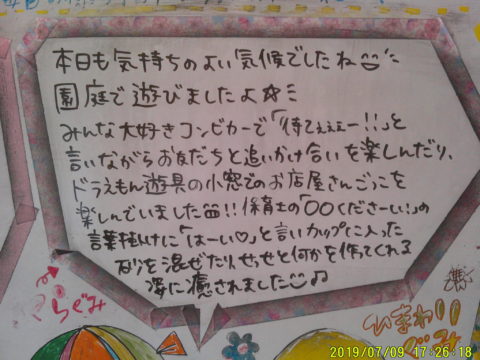 本日も気持ちのよい気候でしたね
園庭で遊びましたよ☆ミ
みんな大好きコンビカーで「待てぇぇぇー!!」と
言いながらお友だちと追いかけ合いを楽しんだり、
ドラえもん遊具の小窓でのお店屋さんごっこを
楽しんでいました!!保育士の「〇〇くださーい!」の
言葉掛けに「はーい♡」と言いカップに入った
砂を混ぜたりせっせと何かを作ってくれる
姿に癒されました♫
さくらぐみ
ひまわり
ぐみ
2019/07/09 17:26:18